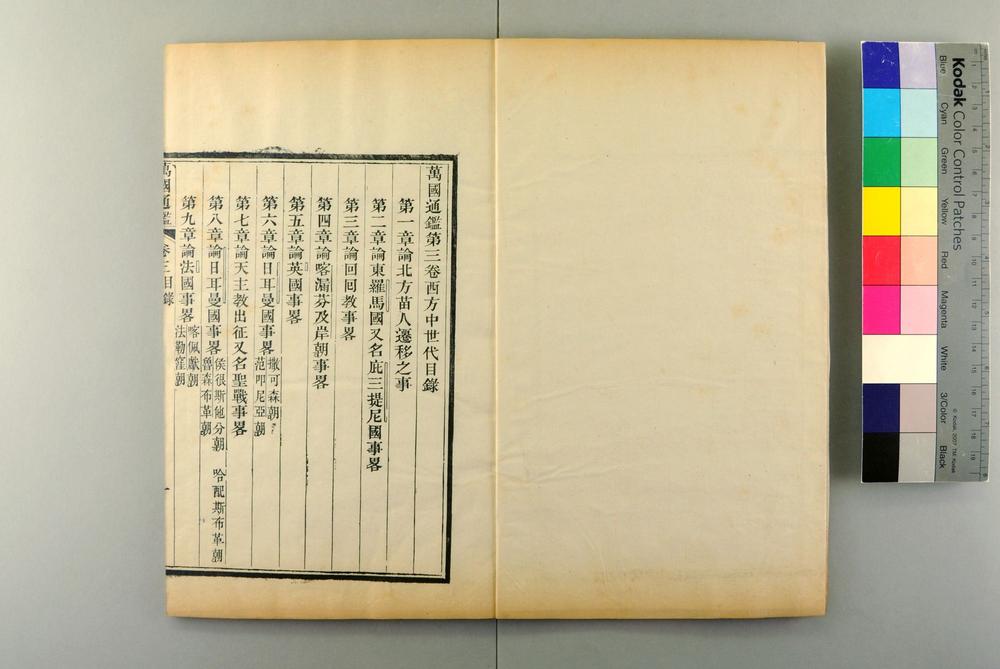 萬國通鑑第三卷西方中世代目錄
第一章論北方苗人遷移之事
第二章論東羅馬國又名庇三提尼國事畧
第三章論回回教事畧
第四章論喀漏芬及岸朝事畧
第五章論英國事畧
第六章論日耳曼國事畧 撒可森朝 范呷尼亞朝
第七章論天主教出征又名聖戰事畧
第八章論日耳曼國事畧 侯很斯飽分朝 哈配斯布革朝 魯森布革朝
第九章論法國事畧 喀佩獻朝 法勒窪朝
萬國通鑑 卷三目錄 一
Kodak Color Control Patches
Blue Cyan Green Yellow Red Magenta White 3/Color Black
© Kodak, 2007 TM: Kodak